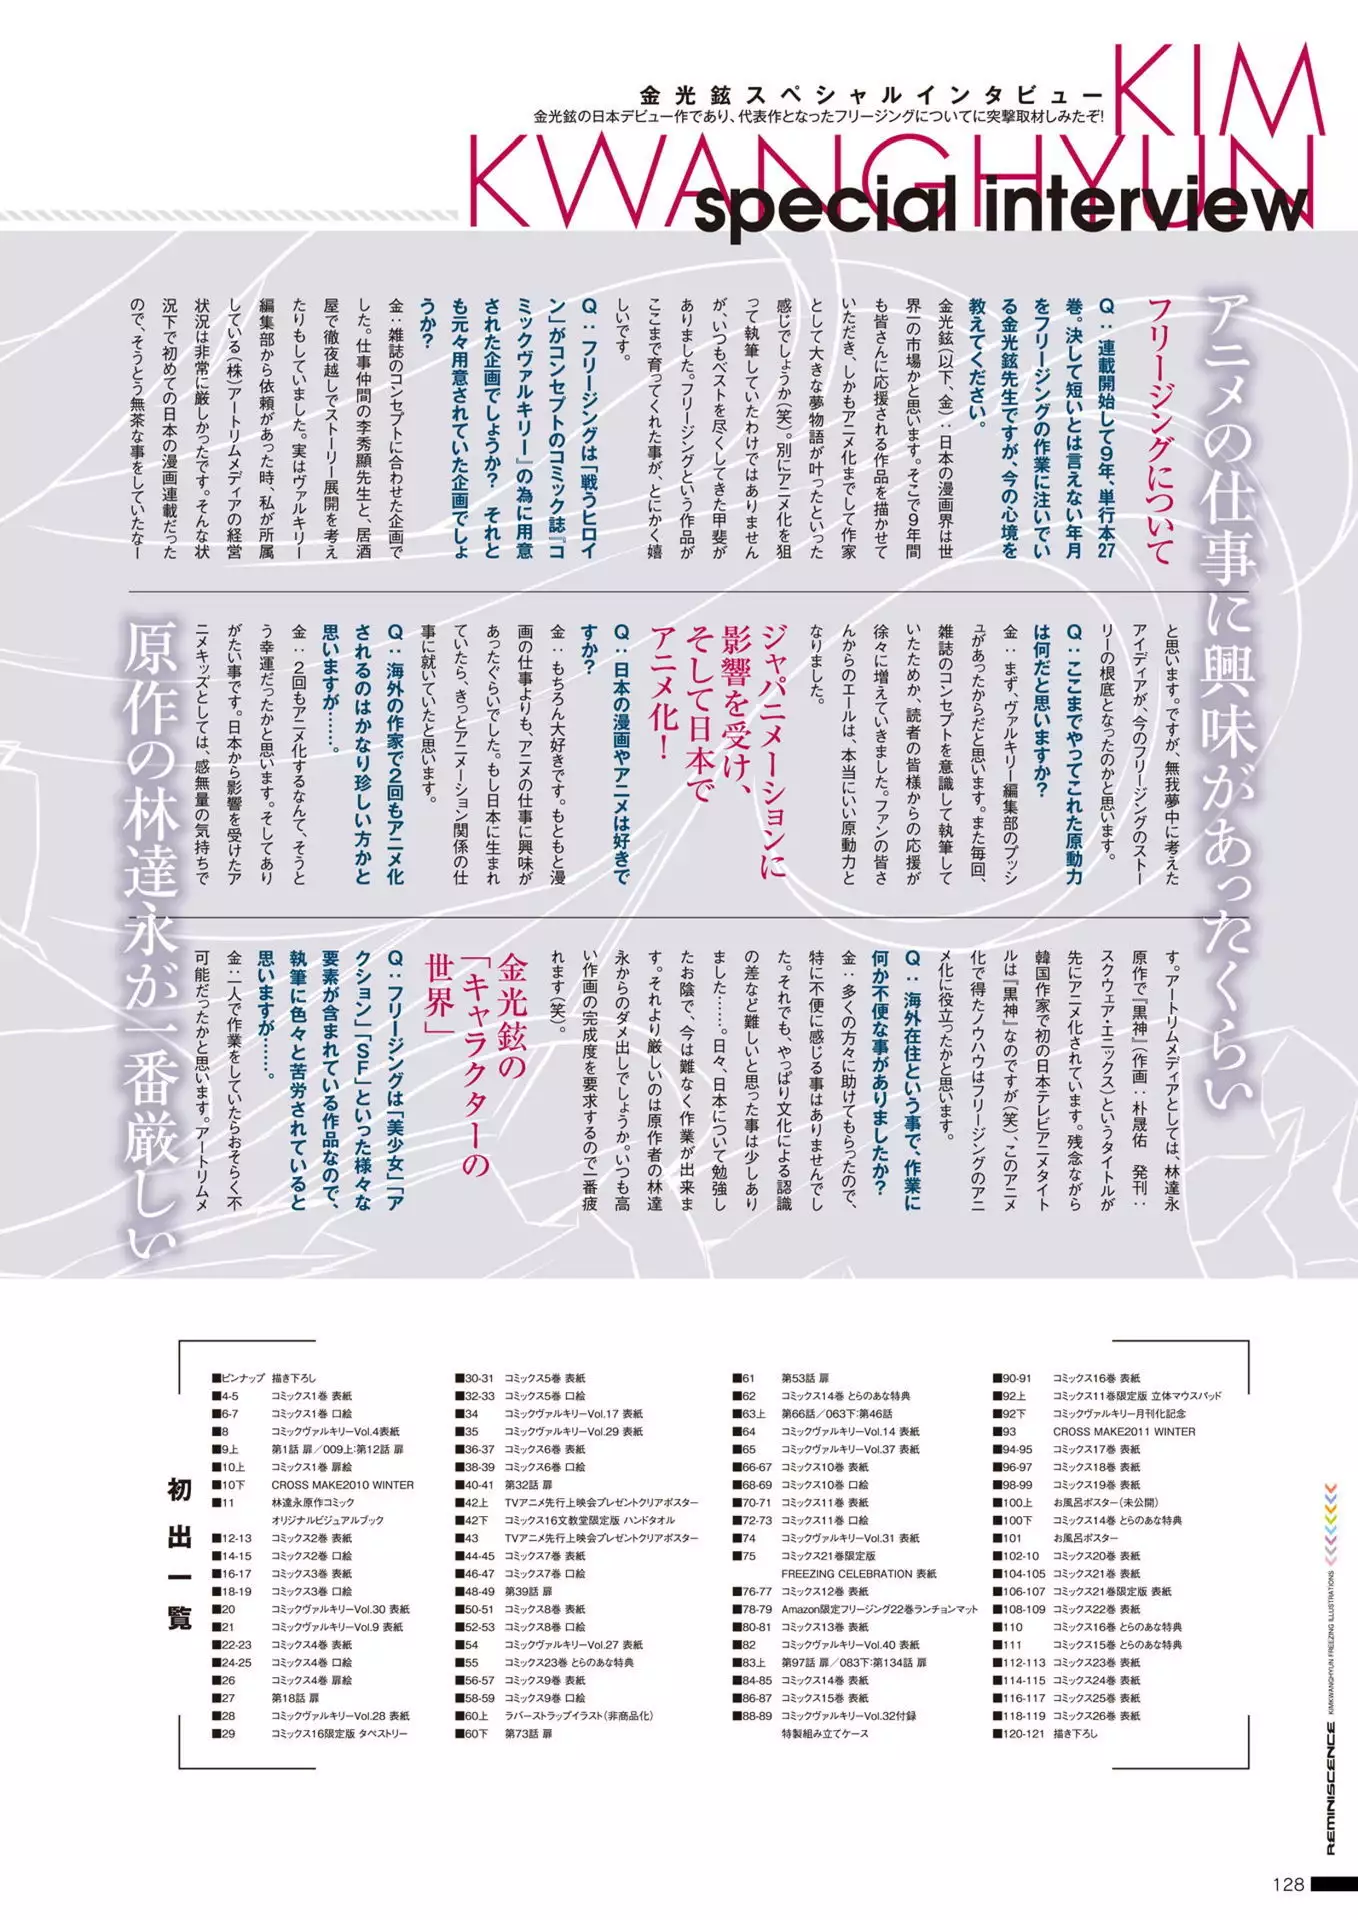 KIM
KWANGHYUN
special interview
金光鉉スペシャルインタビュー
金光鉉の日本デビュー作であり、代表作となったフリージングについてに突撃取材しみたぞ!
アニメの仕事に興味があったくらい
フリージングについて
Q：連載開始して9年、単行本27
巻。決して短いとは言えない年月
をフリージングの作業に注いでい
る金光鉉先生ですが、今の心境を
教えてください。
金光鉉(以下、金)：日本の漫画界は世
界一の市場かと思います。そこで9年間
も皆さんに応援される作品を描かせて
いただき、しかもアニメ化までして作家
として大きな夢物語が叶ったといった
感じでしょうか(笑)。別にアニメ化を狙
って執筆していたわけではありません
が、いつもベストを尽くしてきた甲斐が
ありました。フリージングという作品が
ここまで育ってくれた事が、とにかく嬉
しいです。
Q：フリージングは「戦うヒロイ
ン」がコンセプトのコミック誌『コ
ミックヴァルキリー』の為に用意
された企画でしょうか? それと
も元々用意されていた企画でしょ
うか?
金：雑誌のコンセプトに合わせた企画で
した。仕事仲間の李秀顯先生と、居酒
屋で徹夜越しでストーリー展開を考え
たりもしていました。実はヴァルキリー
編集部から依頼があった時、私が所属
している(株)アートリムメディアの経営
状況は非常に厳しかったです。そんな状
況下で初めての日本の漫画連載だった
ので、そうとう無茶な事をしていたなー
と思います。ですが、無我夢中に考えた
アイディアが、今のフリージングのストー
リーの根底となったのかと思います。
Q：ここまでやってこれた原動力
は何だと思いますか?
金：まず、ヴァルキリー編集部のプッシ
ュがあったからだと思います。また毎回、
雑誌のコンセプトを意識して執筆して
いたためか、読者の皆様からの応援が
徐々に増えていきました。ファンの皆さ
んからのエールは、本当にいい原動力と
なりました。
ジャパニメーションに
影響を受け、
そして日本で
アニメ化!
Q：日本の漫画やアニメは好きで
すか?
金：もちろん大好きです。もともと漫
画の仕事よりも、アニメの仕事に興味が
あったぐらいでした。もし日本に生まれ
ていたら、きっとアニメーション関係の仕
事に就いていたと思います。
Q：海外の作家で2回もアニメ化
されるのはかなり珍しい方かと
思いますが……。
金：2回もアニメ化するなんて、そうと
う幸運だったかと思います。そしてあり
がたい事です。日本から影響を受けたア
ニメキッズとしては、感無量の気持ちで
す。アートリムメディアとしては、林達永
原作で『黒神』(作画：朴晟佑 発刊：
スクウェア・エニックス)というタイトルが
先にアニメ化されています。残念ながら
韓国作家で初の日本テレビアニメタイト
ルは『黒神』なのですが(笑)、このアニメ
化で得たノウハウはフリージングのアニ
メ化に役立ったかと思います。
Q：海外在住という事で、作業に
何か不便な事がありましたか?
金：多くの方々に助けてもらったので、
特に不便に感じる事はありませんでし
た。それでも、やっぱり文化による認識
の差など難しいと思った事は少しあり
ました……。日々、日本について勉強し
たお陰で、今は難なく作業が出来ま
す。それより厳しいのは原作者の林達
永からのダメ出しでしょうか。いつも高
い作画の完成度を要求するので一番疲
れます(笑)。
金光鉉の
「キャラクターの
世界」
Q：フリージングは「美少女」「ア
クション」「SF」といった様々な
要素が含まれている作品なので、
執筆に色々と苦労されていると
思いますが……。
金：一人で作業をしていたらおそらく不
可能だったかと思います。アートリムメ
原作の林達永が一番厳しい
初出一覧
■ピンナップ 描き下ろし
■4-5 コミックス1巻 表紙
■6-7 コミックス1巻 口絵
■8 コミックヴァルキリーVol.4表紙
■9上 第1話 扉／009上:第12話 扉
■10上 コミックス1巻 扉絵
■10下 CROSS MAKE2010 WINTER
■11 林達永原作コミック
オリジナルビジュアルブック
■12-13 コミックス2巻 表紙
■14-15 コミックス2巻 口絵
■16-17 コミックス3巻 表紙
■18-19 コミックス3巻 口絵
■20 コミックヴァルキリーVol.30 表紙
■21 コミックヴァルキリーVol.9 表紙
■22-23 コミックス4巻 表紙
■24-25 コミックス4巻 口絵
■26 コミックス4巻 扉絵
■27 第18話 扉
■28 コミックヴァルキリーVol.28 表紙
■29 コミックス16限定版 タペストリー
■30-31 コミックス5巻 表紙
■32-33 コミックス5巻 口絵
■34 コミックヴァルキリーVol.17 表紙
■35 コミックヴァルキリーVol.29 表紙
■36-37 コミックス6巻 表紙
■38-39 コミックス6巻 口絵
■40-41 第32話 扉
■42上 TVアニメ先行上映会プレゼントクリアポスター
■42下 コミックス16文教堂限定版 ハンドタオル
■43 TVアニメ先行上映会プレゼントクリアポスター
■44-45 コミックス7巻 表紙
■46-47 コミックス7巻 口絵
■48-49 第39話 扉
■50-51 コミックス8巻 表紙
■52-53 コミックス8巻 口絵
■54 コミックヴァルキリーVol.27 表紙
■55 コミックス23巻 とらのあな特典
■56-57 コミックス9巻 表紙
■58-59 コミックス9巻 口絵
■60上 ラバーストラップイラスト(非商品化)
■60下 第73話 扉
■61 第53話 扉
■62 コミックス14巻 とらのあな特典
■63上 第66話／063下:第46話
■64 コミックヴァルキリーVol.14 表紙
■65 コミックヴァルキリーVol.37 表紙
■66-67 コミックス10巻 表紙
■68-69 コミックス10巻 口絵
■70-71 コミックス11巻 表紙
■72-73 コミックス11巻 口絵
■74 コミックヴァルキリーVol.31 表紙
■75 コミックス21巻限定版
FREEZING CELEBRATION 表紙
■76-77 コミックス12巻 表紙
■78-79 Amazon限定フリージング22巻ランチョンマット
■80-81 コミックス13巻 表紙
■82 コミックヴァルキリーVol.40 表紙
■83上 第97話 扉／083下:第134話 扉
■84-85 コミックス14巻 表紙
■86-87 コミックス15巻 表紙
■88-89 コミックヴァルキリーVol.32付録
特製組み立てケース
■90-91 コミックス16巻 表紙
■92上 コミックス11巻限定版 立体マウスパッド
■92下 コミックヴァルキリー月刊化記念
■93 CROSS MAKE2011 WINTER
■94-95 コミックス17巻 表紙
■96-97 コミックス18巻 表紙
■98-99 コミックス19巻 表紙
■100上 お風呂ポスター(未公開)
■100下 コミックス14巻 とらのあな特典
■101 お風呂ポスター
■102-10 コミックス20巻 表紙
■104-105 コミックス21巻 表紙
■106-107 コミックス21巻限定版 表紙
■108-109 コミックス22巻 表紙
■110 コミックス16巻 とらのあな特典
■111 コミックス15巻 とらのあな特典
■112-113 コミックス23巻 表紙
■114-115 コミックス24巻 表紙
■116-117 コミックス25巻 表紙
■118-119 コミックス26巻 表紙
■120-121 描き下ろし
REMINISCENCE KIMKWANGHYUN FREEZING ILLUSTRATIONS
128